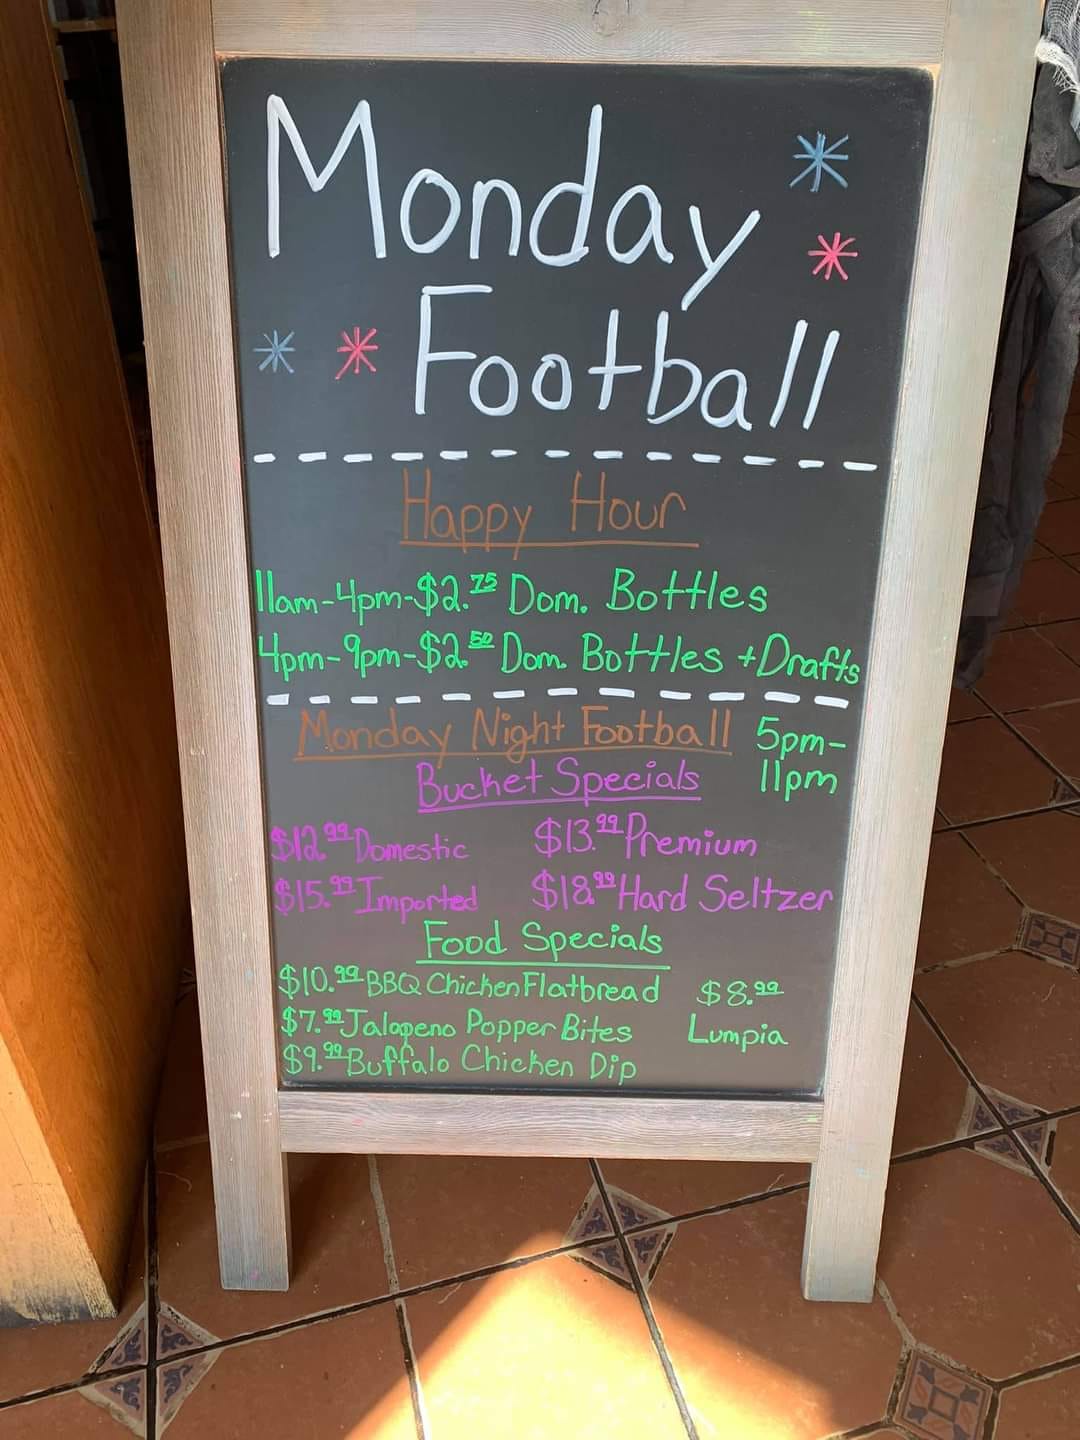 Monday
Football
Happy Hour
11am-4pm-$2.75 Dom. Bottles
4pm-9pm-$2.50 Dom. Bottles + Drafts
Monday Night Football 5pm-
11pm
Bucket Specials
$12.99 Domestic $13.99 Premium
$15.99 Imported $18.99 Hard Seltzer
Food Specials
$10.99 BBQ Chicken Flatbread $8.99
$7.99 Jalapeno Popper Bites Lumpia
$9.99 Buffalo Chicken Dip